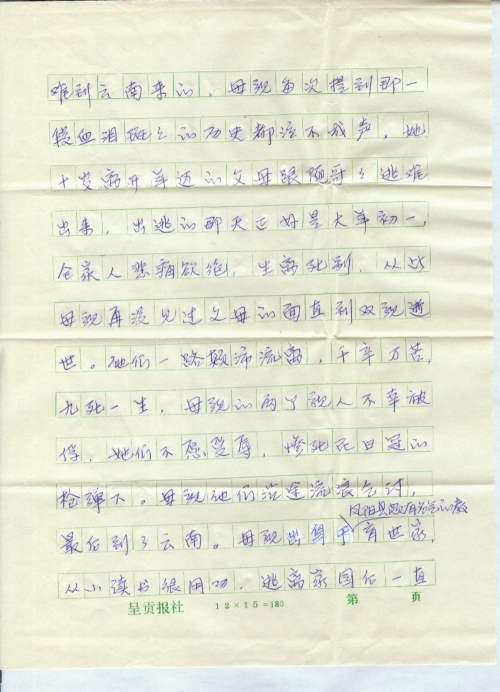 难到云南来的。母亲每次提到那一
段血泪斑斑的历史都泣不成声。她
十岁离开年迈的父母跟随哥哥逃难
出来，出逃的那天正好是大年初一，
全家人悲痛欲绝，生离死别，从此
母亲再没见过父母的面直到双亲逝
世。他们一路颠沛流离，千辛万苦，
九死一生，母亲的两个亲人不幸被
俘，她们不愿受辱，惨死在日寇的
枪弹下。母亲他们沿途流浪乞讨，
凤阳县有名的教
最后到了云南。母亲出身于育世家，
从小读书很用功，逃离家园后一直
呈贡报社 12×15=180 第 页